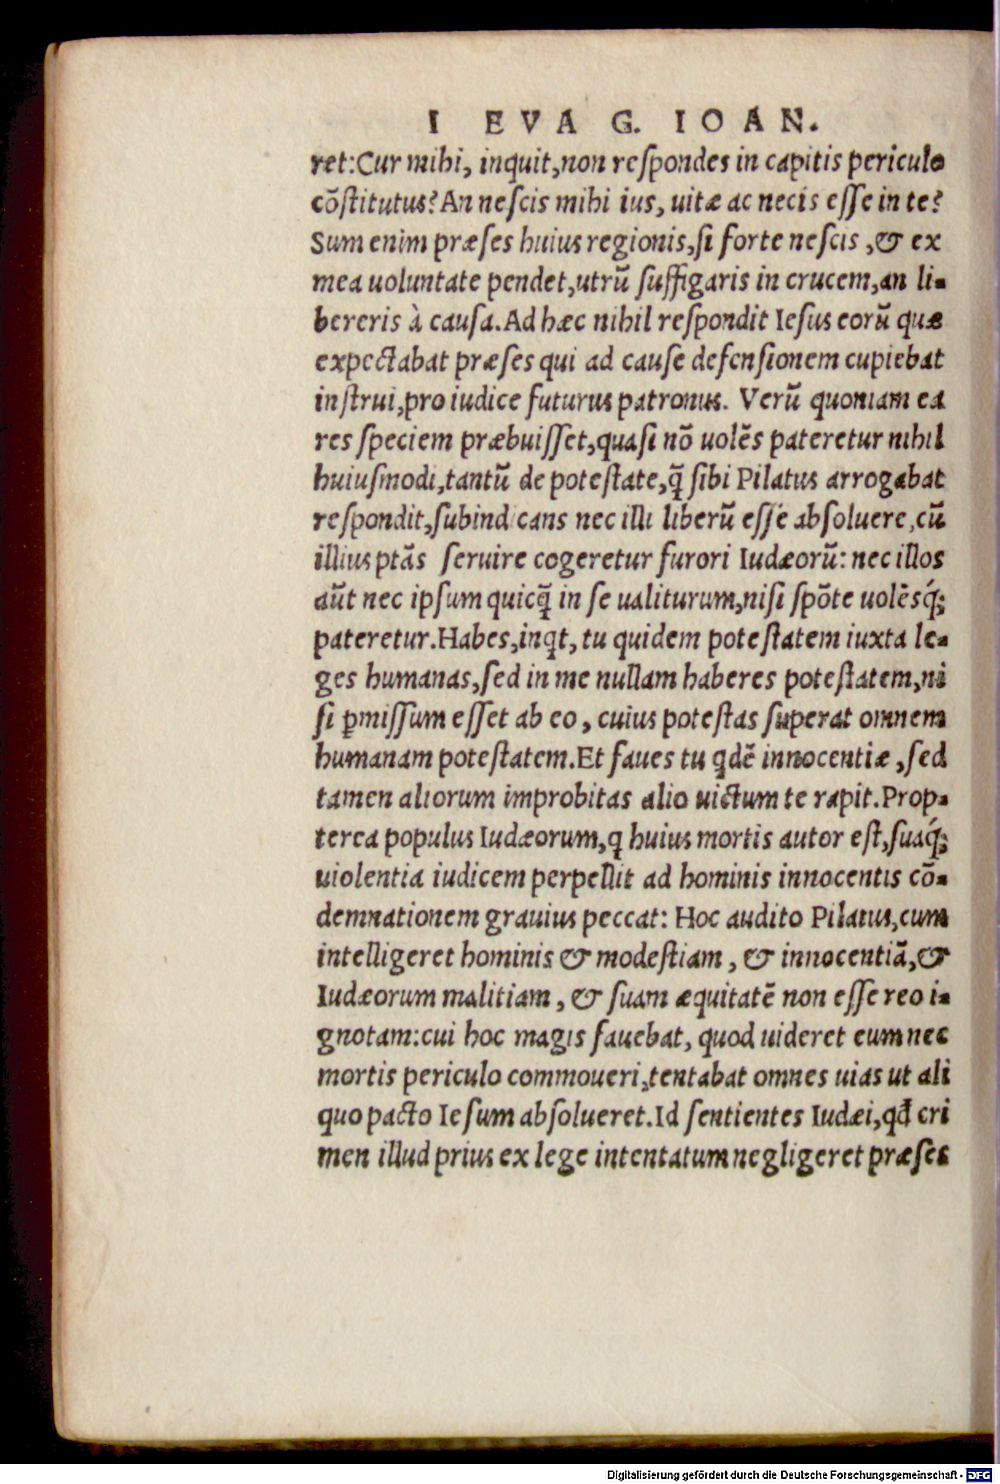 I EVAG. IOAN.
ret:Cur mihi, inquit,non reſpondes in capitis periculo
cõſtitutus? An neſcis mihi ius, uitæ ac necis eſſe in te?
Sum enim præſes huius regionis,ſi forte neſcis ,& ex
mea uoluntate pendet,utrũ ſuffigaris in crucem,an li-
bereris à cauſa. Ad hæc nihil reſpondit Ieſus eorũ quæ
expectabat præſes qui ad cauſe defenſionem cupiebat
inſtrui,pro iudice futurus patronus. Verũ quoniam ea
res ſpeciem præbuiſſet,quaſi nõ uolẽs pateretur nihil
huiuſmodi,tantũ de poteſtate,q̃ ſibi Pilatus arrogabat
reſpondit,ſubindicans nec illi liberũ eſſe abſoluere,cũ
illius ptãs ſeruire cogeretur furori Iudæorũ: nec illos
aũt nec ipſum quicq̃ in ſe ualiturum,niſi ſpõte uolẽsq́;
pateretur. Habes,inqt, tu quidem poteſtatem iuxta le-
ges humanas,ſed in me nullam haberes poteſtatem,ni
ſi ꝑmiſſum eſſet ab eo, cuius poteſtas ſuperat omnem
humanam poteſtatem. Et faues tu qdẽ innocentiæ ,ſed
tamen aliorum improbitas alio uictum te rapit. Prop-
terea populus Iudæorum,q huius mortis autor eſt,ſuaq́;
uiolentia iudicem perpellit ad hominis innocentis cõ-
demnationem grauius peccat: Hoc audito Pilatus,cum
intelligeret hominis & modeſtiam, & innocentiã,&
Iudæorum malitiam, & ſuam æquitatẽ non eſſe reo i-
gnotam:cui hoc magis fauebat, quod uideret eum nec
mortis periculo commoueri,tentabat omnes uias ut ali
quo pacto Ieſum abſolueret. Id ſentientes Iudæi,qđ cri
men illud prius ex lege intentatum negligeret præſes
Digitalisierung gefördert durch die Deutsche Forschungsgemeinschaft - DFG